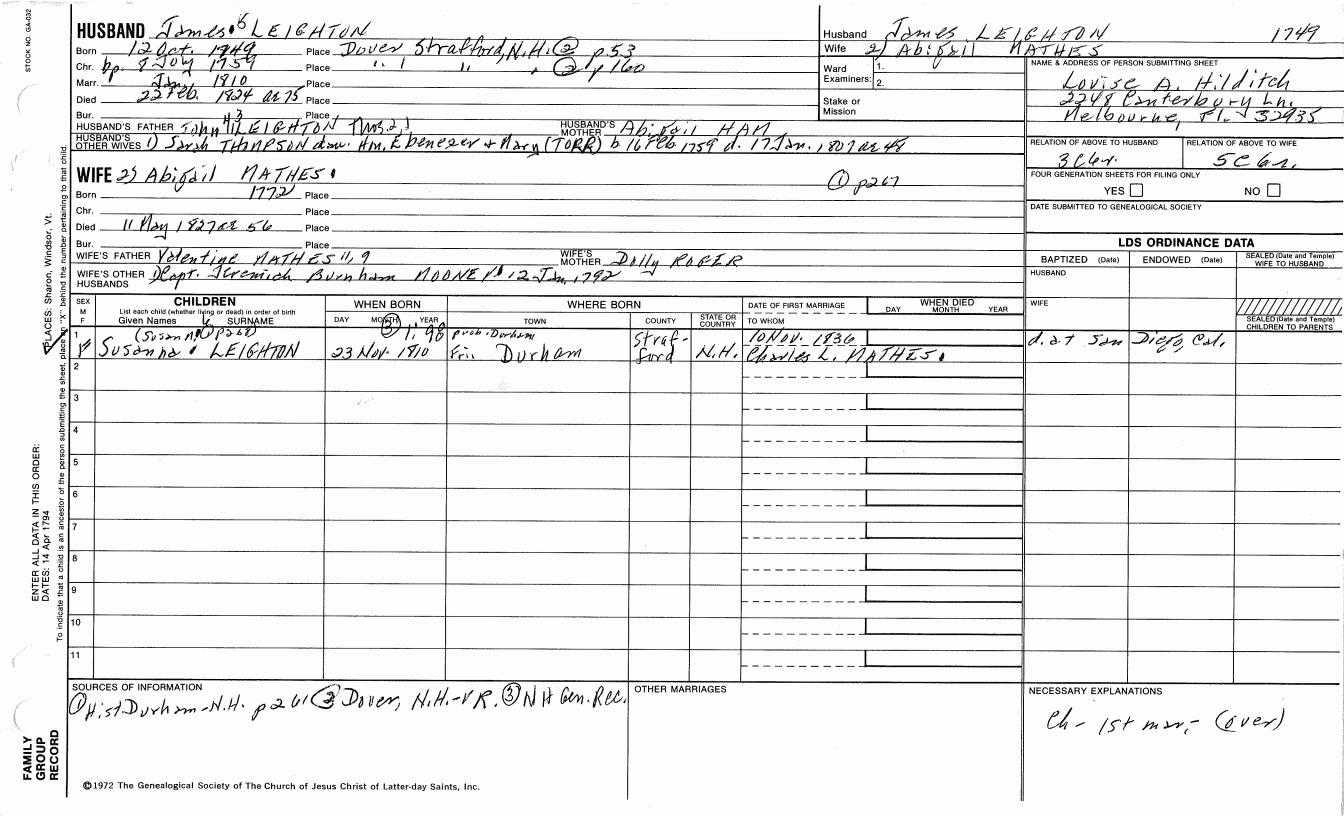 STOCK NO. GA-032
HUSBAND James 5 LEIGHTON
Born 12 Oct. 1749 Place Dover Strafford, N.H. ② p.53
Chr. bp. 8 July 1759 Place " " " , ② p160
Marr. Jan. 1810 Place
Died 22 Feb. 1824 ae 75 Place
Bur. Place
HUSBAND'S FATHER John 4 LEIGHTON Thos. 2, 1
HUSBAND'S MOTHER Abigail HAM
HUSBAND'S OTHER WIVES 1) Sarah THOMPSON dau. Ebenezer + Mary (TORR) b 16 Feb 1759 d. 17 Jan. 1807 ae 48
WIFE 2) Abigail MATHES
① p267
Born 1772 Place
Chr. Place
Died 11 May 1827 ae 56 Place
Bur. Place
WIFE'S FATHER Valentine MATHES
WIFE'S MOTHER Dolly ROGER
WIFE'S OTHER HUSBANDS Capt. Jeremiah Burnham MOONEY 12 Jan. 1792
Husband James LEIGHTON 1749
Wife 2) Abigail MATHES
Ward Examiners: 1.
2.
Stake or Mission
NAME & ADDRESS OF PERSON SUBMITTING SHEET
Louise A. Hilditch
2248 Canterbury Ln.
Melbourne, Fl. 32935
RELATION OF ABOVE TO HUSBAND
RELATION OF ABOVE TO WIFE
3C6r.
5C6r.
FOUR GENERATION SHEETS FOR FILING ONLY
YES NO
DATE SUBMITTED TO GENEALOGICAL SOCIETY
LDS ORDINANCE DATA
BAPTIZED (Date) ENDOWED (Date) SEALED (Date and Temple) WIFE TO HUSBAND
HUSBAND
WIFE
SEALED (Date and Temple) CHILDREN TO PARENTS
SEX M F
CHILDREN
List each child (whether living or dead) in order of birth
Given Names SURNAME
WHEN BORN
DAY MONTH YEAR
WHERE BORN
TOWN COUNTY STATE OR COUNTRY
DATE OF FIRST MARRIAGE
TO WHOM
WHEN DIED
DAY MONTH YEAR
1 (Susan ① p268) ③ 1:98 prob. Durham Straf- 10 Nov. 1836
F Susanna LEIGHTON 23 Nov. 1810 Fri. Durham ford N.H. Charles L. MATHES
d. at San Diego, Cal.
2
3
4
5
6
7
8
9
10
11
SOURCES OF INFORMATION
① Hist Durham-N.H. p261 ② Dover, N.H.-VR. ③ NH Gen. Rec.
OTHER MARRIAGES
NECESSARY EXPLANATIONS
Ch- 1st mar.- (over)
©1972 The Genealogical Society of The Church of Jesus Christ of Latter-day Saints, Inc.
ENTER ALL DATA IN THIS ORDER:
DATES: 14 Apr 1794
PLACES: Sharon, Windsor, Vt.
To indicate that a child is an ancestor of the person submitting the sheet, place "X" behind the number pertaining to that child.
FAMILY
GROUP
RECORD